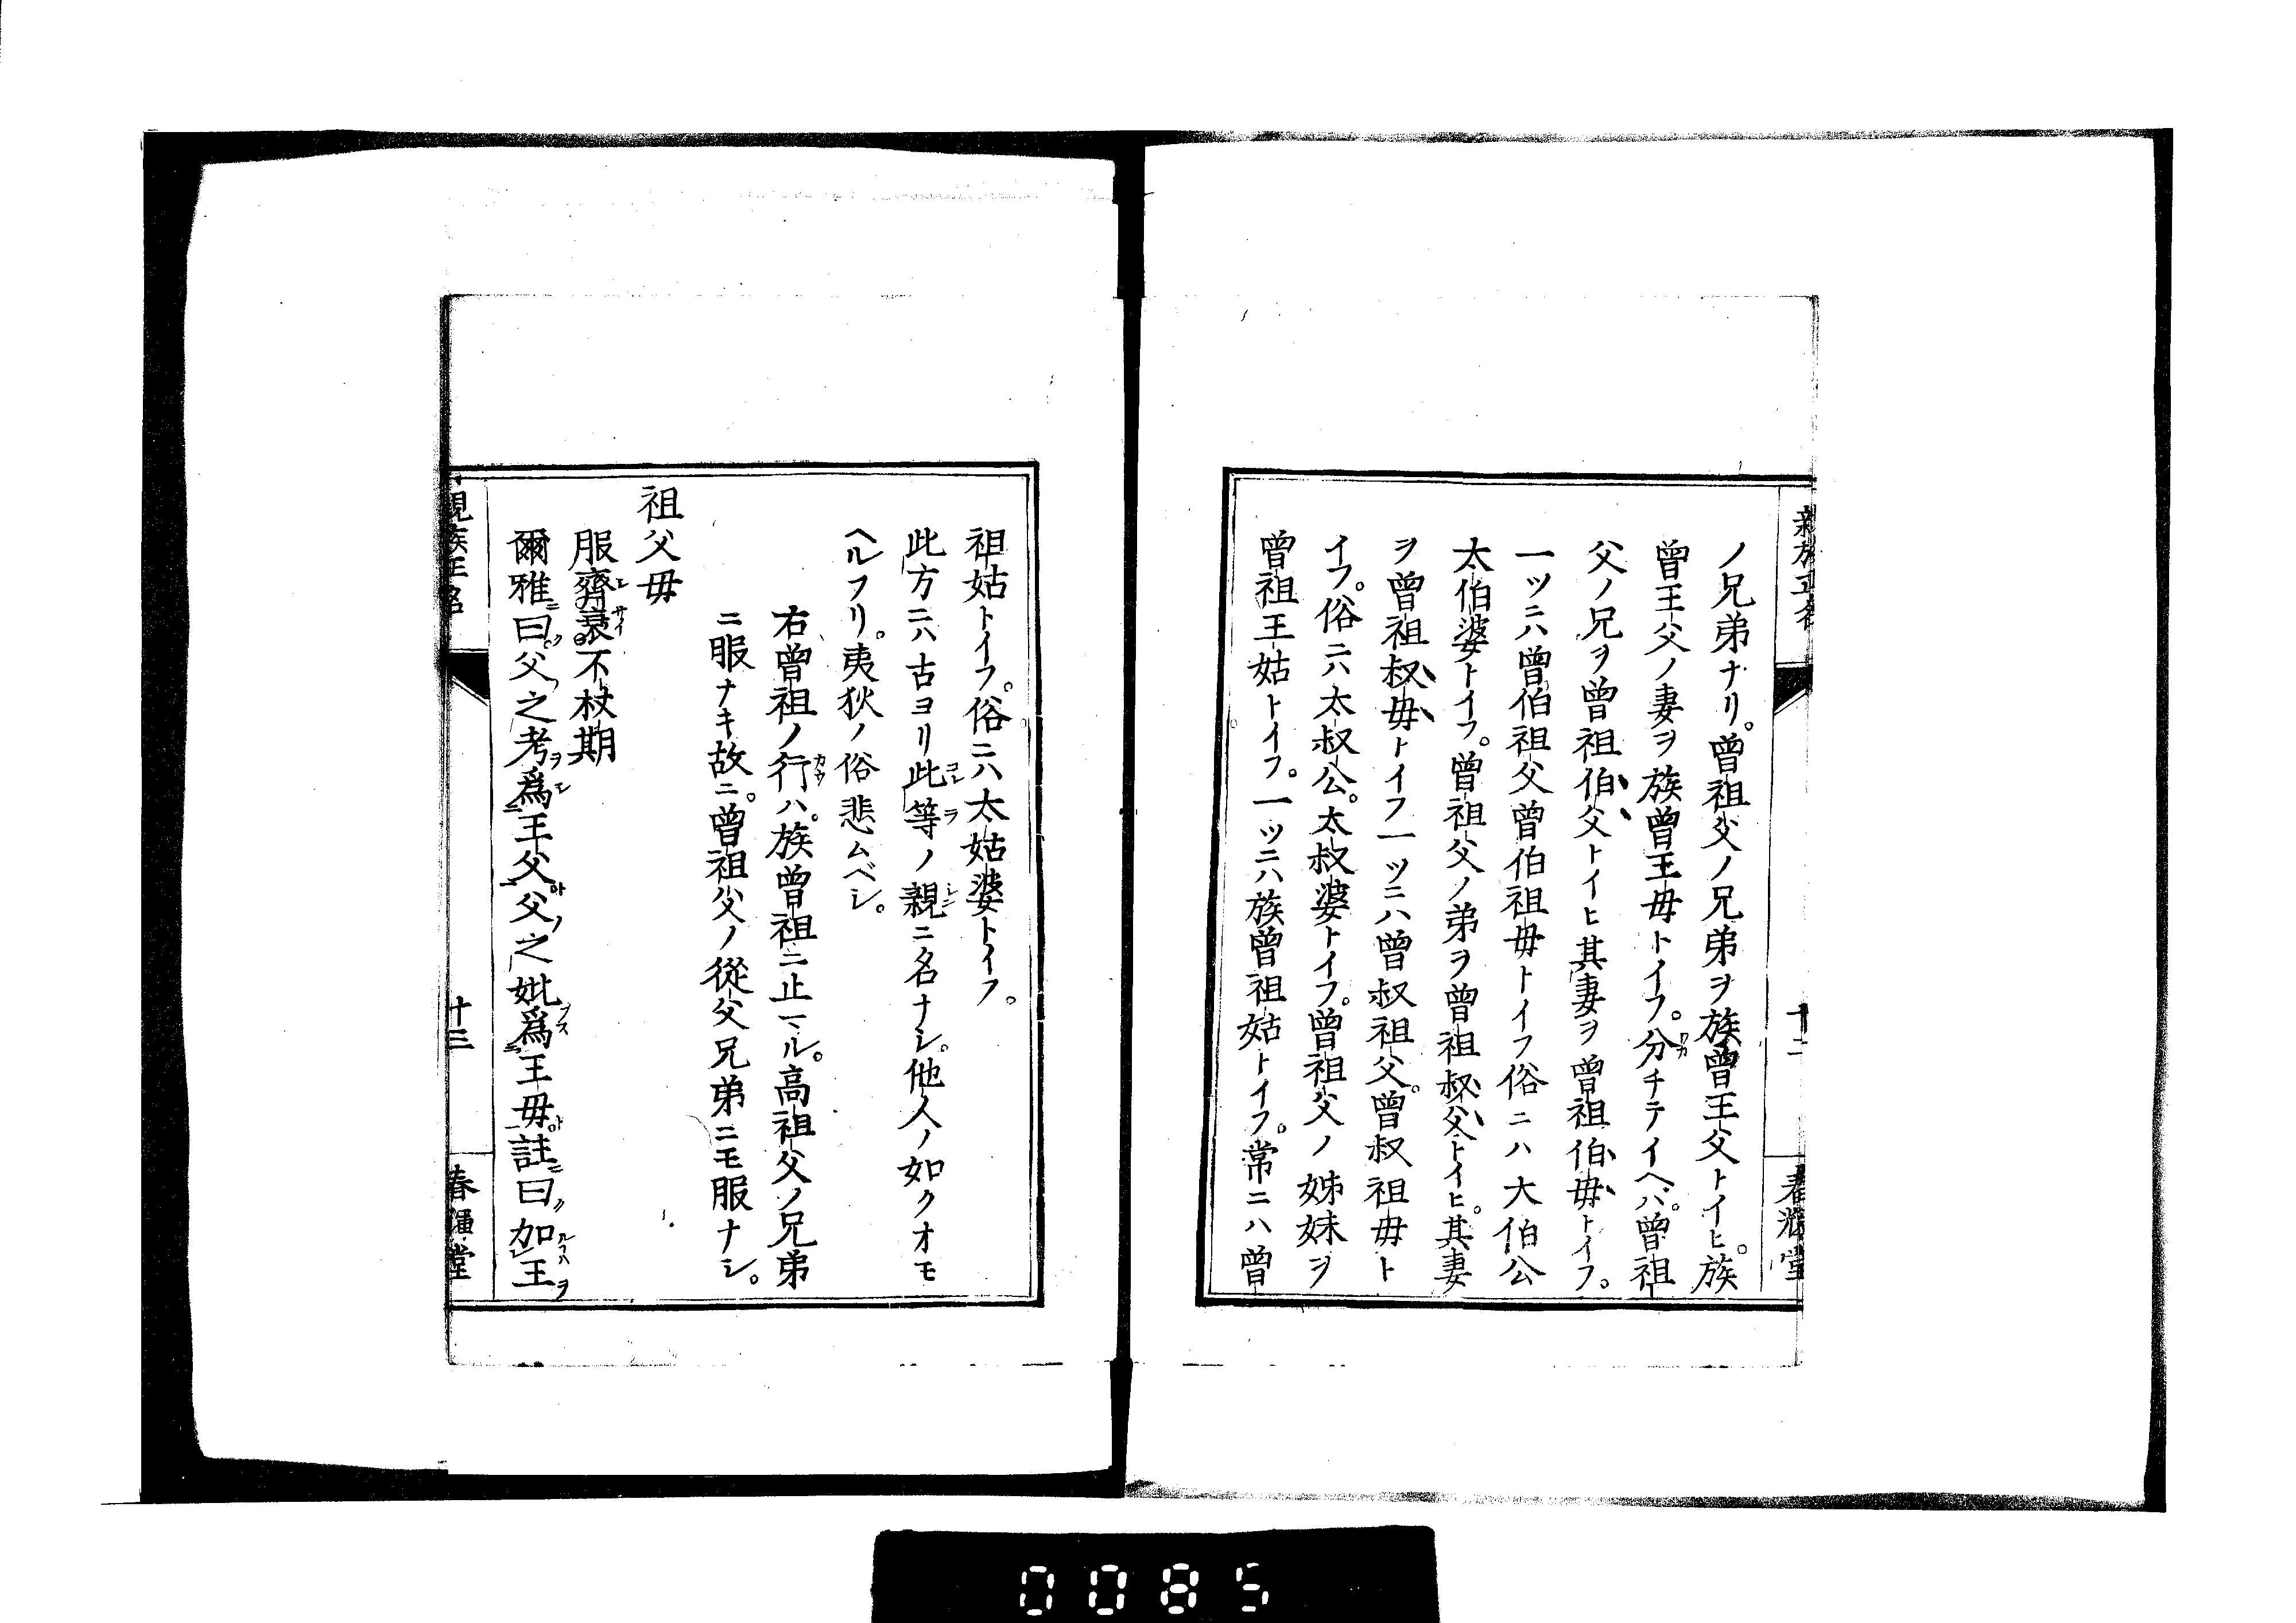 親族正名
十二
ノ兄弟ナリ。曾祖父ノ兄弟ヲ族曾王父トイヒ。族
曾王父ノ妻ヲ族曾王母トイフ。分チテイヘバ。曾祖
父ノ兄ヲ曾祖伯父トイヒ其妻ヲ曾祖伯母トイフ。
一ツニハ曾伯祖父曾伯祖母トイフ俗ニハ大伯公
太伯婆トイフ。曾祖父ノ弟ヲ曾祖叔父トイヒ。其妻
ヲ曾祖叔母トイフ一ツニハ曾叔祖父。曾叔祖母ト
イフ。俗ニハ太叔公。太叔婆トイフ。曾祖父ノ姊妹ヲ
曾祖王姑トイフ。一ツニハ族曾祖姑トイフ。常ニハ曾
祖姑トイフ。俗ニハ太姑婆トイフ。
此方ニハ古ヨリ此等ノ親ニ名ナシ。他人ノ如クオモ
ヘルフリ。夷狄ノ俗悲ムベシ。
右曾祖ノ行ハ。族曾祖ニ止マル。高祖父ノ兄弟
ニ服ナキ故ニ。曾祖父ノ從父兄弟ニモ服ナシ。
祖父母
服齊衰不杖期
爾雅曰父之考爲王父父之妣爲王母註曰加王
親族正名
十三
春
堂
0085